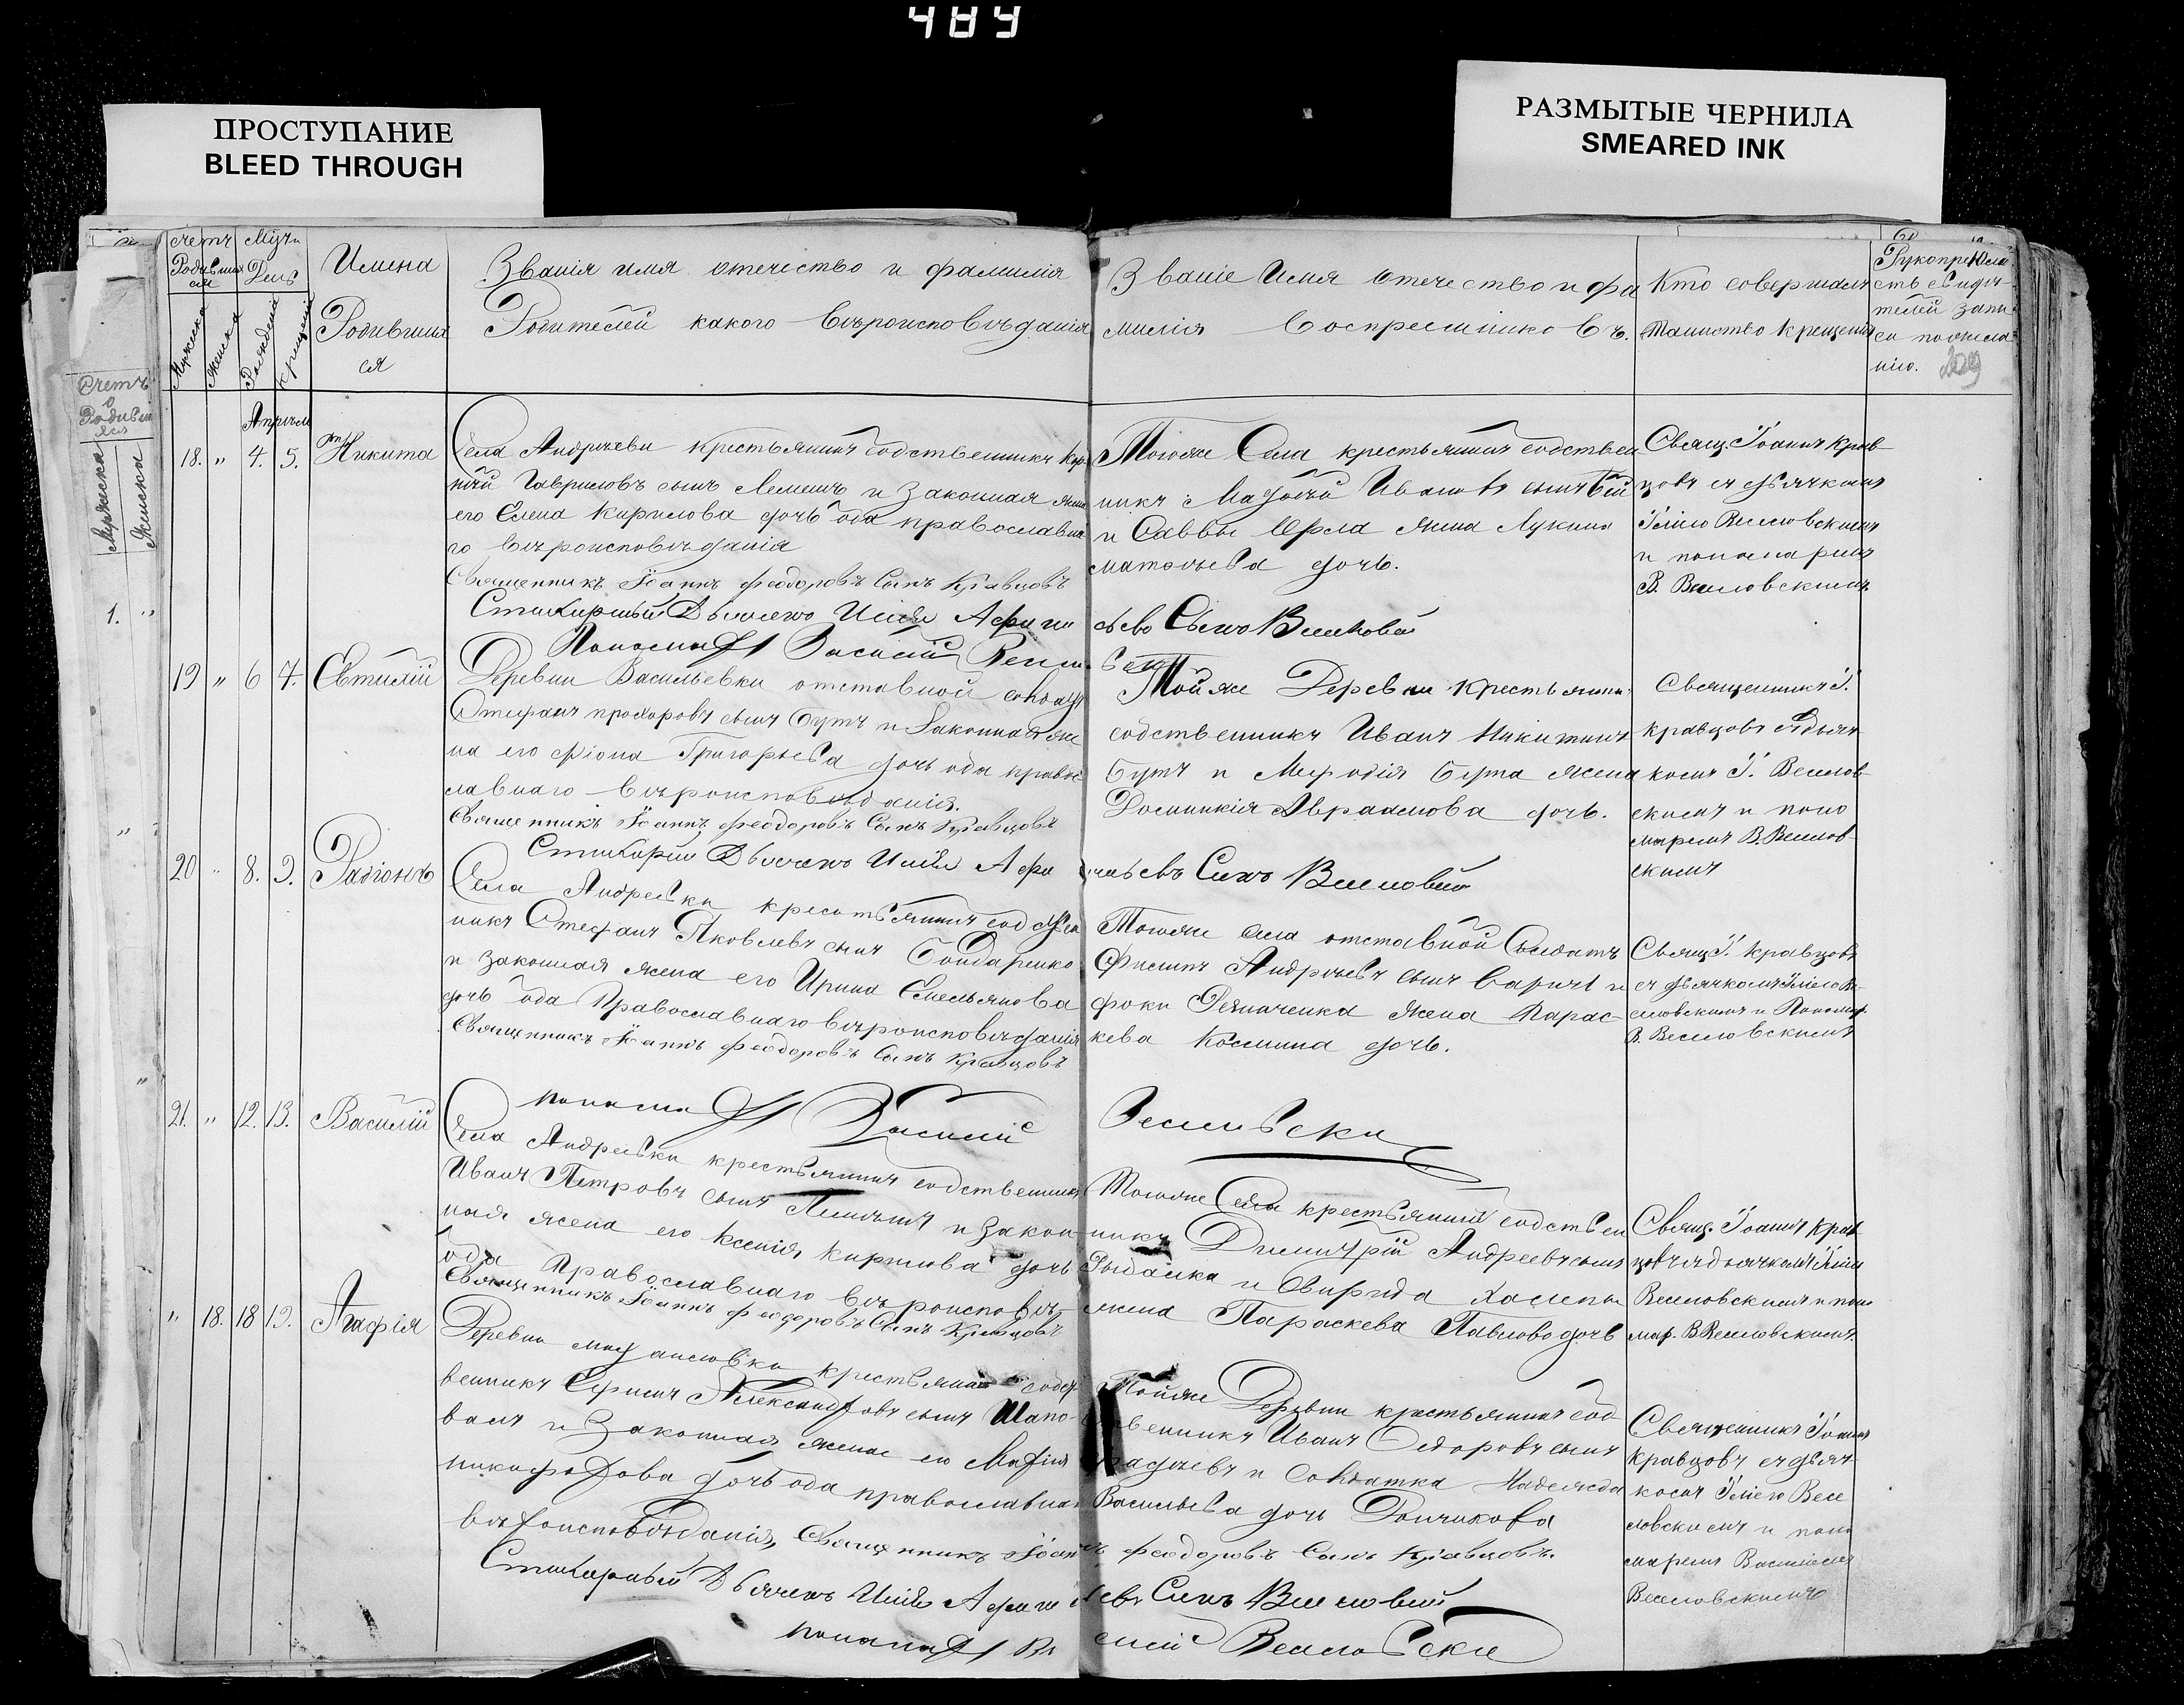 489
ПРОСТУПАНИЕ
BLEED THROUGH
РАЗМЫТЫЕ ЧЕРНИЛА
SMEARED INK
счетъ Родившихся
Мужеска
Женска
Мц-ъ День
Рожденія
крещенія
Имена Родившихся
Званія имя отечество и фамилія
Родителей какого вѣроисповѣданія
Званіе Имя отечество и фа
милія Воспреемниковъ.
Кто совершалъ
таинство крещенія
Рукоприкла
ство свидѣ-
телей запи
си по жела
нію.
229
Счетъ
Родивш
Мужеска
Женска
1. "
Апрѣль
18. " 4. 5. Никита
Села Андреевки крестьянинъ собственникъ
Гавриловъ сынъ Лемешъ и законная жена
его Елена Кирилова дочь оба православна
го вѣроисповѣданія
Священникъ Іоаннъ Феодоровъ Сынъ Кравцовъ
Стихарный Дьячекъ Илія
Тогоже Села крестьянинъ собствен
никъ Ивановъ сынъ
и Саввы Орла жена Лукина
дочь.
Свящ. Іоаннъ Крав-
цовъ съ дьячкомъ
Иліею Веселовскимъ
и пономаремъ
В. Веселовскимъ
Пономарь Василій
19 " 6 7. Евтихій
Деревни Васильевки отставной солдатъ
Стефанъ Прохоровъ сынъ Бутъ и законная же
на его Григорьева дочь оба правос
лавнаго вѣроисповѣданія.
Священникъ Іоаннъ Феодоровъ Сынъ Кравцовъ
Стихарный Дьячекъ Илія
Сынъ
Тойже Деревни крестьянинъ
собственникъ Иванъ Никитинъ
Бутъ и Мефодія Бута жена
Домникія Авраамова дочь.
Священникъ І.
Кравцовъ съ дьяч-
комъ І. Веселов-
скимъ и поно
маремъ В. Веселов-
скимъ
20 " 8. 9. Радіонъ
Села Андреевки крестьянинъ собствен
никъ Стефанъ Яковлевъ сынъ Бондаренко
и законная жена его Ирина Емельянова
дочь оба Православнаго вѣроисповѣданія
Священникъ Іоаннъ Феодоровъ Сынъ Кравцовъ
Тогоже села отставной Солдатъ
Филипъ Андреевъ сынъ и
Фоки жена Парас-
кева Космина дочь.
Свящ. І. Кравцовъ
съ дьячкомъ Иліею Ве-
селовскимъ и Пономар.
В. Веселовскимъ
Пономарь Василій Веселовскій
21. " 12. 13. Василій
Села Андреевки крестьянинъ собственникъ
Иванъ Петровъ сынъ и закон
ная жена его Ксенія Кирилова дочь
оба Православнаго вѣроисповѣ-
Священникъ Іоаннъ Феодоровъ Сынъ Кравцовъ
Тогоже Села крестьянинъ собствен
никъ Димитрій Андреевъ сынъ
Рыбалка и Свирида
жена Параскева Павлова дочь
Свящ. Іоаннъ Крав
цовъ съ дьячкомъ Иліею
Веселовскимъ и поно
мар. В. Веселовскимъ.
" 18. 18 19. Агафія
Деревни крестьянинъ собст
венникъ Ефимъ Александровъ сынъ Шапо-
валъ и Законная жена его Марія
Никифорова дочь оба православнаго
вѣроисповѣданія, Священникъ Іоаннъ Феодоровъ Сынъ Кравцовъ.
Стихарный Дьячекъ Илія Сынъ
Тойже Деревни крестьянинъ соб
ственникъ Иванъ Федоровъ сынъ
и Солдатка Надежда
Васильева дочь
Священникъ Іоаннъ
Кравцовъ съ дьяч-
комъ Иліею Весе
ловскимъ и поно
маремъ Василіемъ
Веселовскимъ